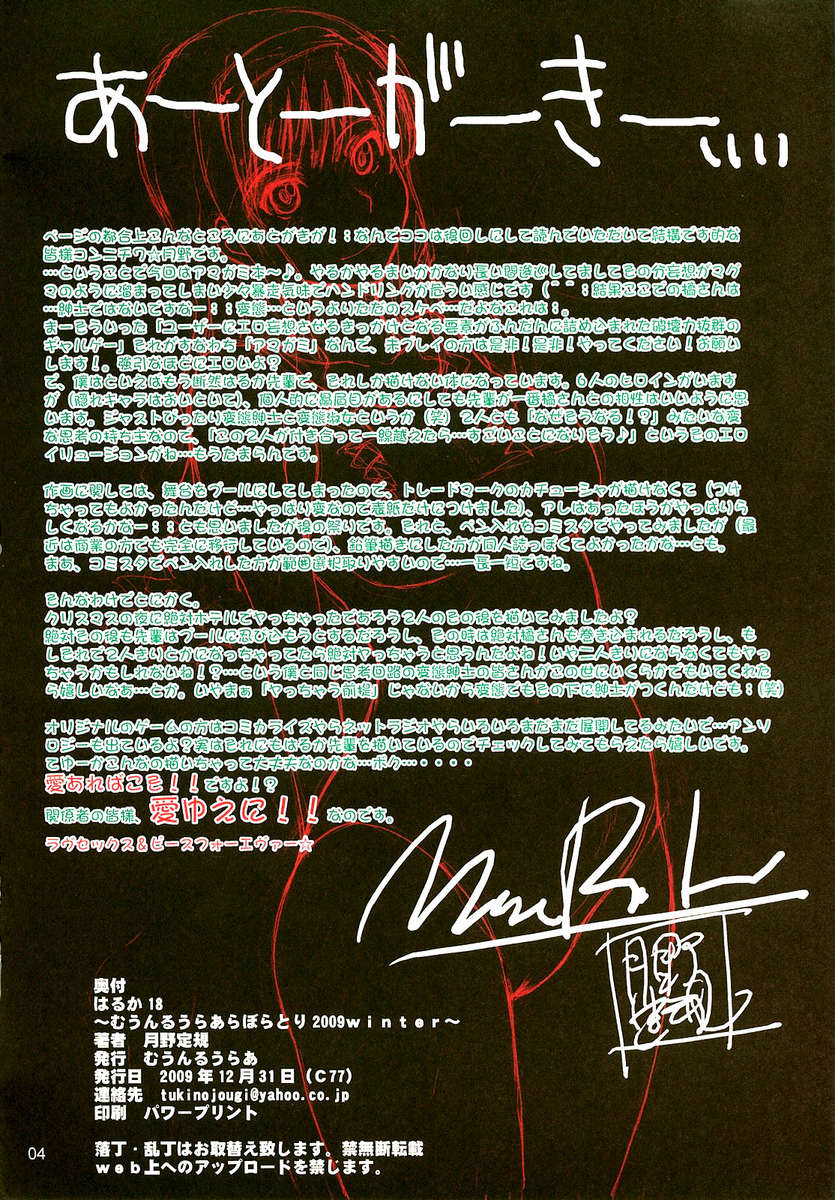 あーとーがーきー、、、、
ページの都合上こんなところにあとがきが！；なんでココは後回しにして読んでいただいて結構です的な
皆様コンニチワ☆月野です。
…ということで今回はアマガミ本〜♪。やるかやるまいかかなり長い間遊びしてましてその分妄想がマグ
マのように溜まってしまい少々暴走気味でハンドリングが危うい感じです（＾＾；結果ここでの橘さんは
…紳士ではないですな…；；変態…というよりただのスケベ…だよなこれは；。
まーそういった「ユーザーにエロ妄想させるきっかけとなる要素がふんだんに詰めひまれた破壊力抜群の
ギャルゲー」それがすなわち「アマガミ」なんで、未プレイの方は是非！是非！やってください！お願い
します！。強引なほどにエロいよ？
で、僕はといえばもう断然はるか先輩で、それしか描けない体になっています。6人のヒロインがいます
が（隠れキャラはおいといて）、個人的に最屓目があるにしても先輩が一番橘さんとの相性はいいように思
います。ジャストぴったり変態紳士と変態淑女というか（笑）2人とも「なぜそうなる！？」みたいな変
な思考の持ち主なので、「この2人が付き合って一線越えたら…すごいことになりそう♪」というそのエロ
イリュージョンがね…もうたまらんです。
作画に関しては、舞台をプールにしてしまったので、トレードマークのカチューシャが描けなくて（つけ
ちゃってもよかったんだけど…やっぱり変なので表紙だけにつけました）、アレはあったほうがやっぱりら
しくなるかなー；；とも思いましたが後の祭りです。それと、ペン入れをコミスタでやってみましたが（最
近は商業の方でも完全に移行しているので）、鉛筆描きにした方が同人誌っぽくてよかったかな…とも。
まあ、コミスタでペン入れした方が範囲選択取りやすいので…一長一短ですね。
そんなわけでとにかく。
クリスマスの夜に絶対ホテルでヤっちゃったであろう2人のその後も描いてみましたよ？
絶対その後も先輩はプールに忍びひもうとするだろうし、その時は絶対橘さんも巻きひまれるだろうし、も
しそれで2人きりとかになっちゃってたら絶対ヤっちゃうと思うんだよね！いや二人きりにならなくてもヤっ
ちゃうかもしれないね！？…という僕と同じ思考回路の変態紳士の皆さんがこの世にいくらかでもいてくれた
ら嬉しいなあ…とか。いやまぁ「ヤっちゃう前提」じゃないから変態でもその下に紳士がつくんだけども；（笑）
オリジナルのゲームの方はコミカライズやらネットラジオやらいろいろまだまだ展開してるみたいで…アンソ
ロジーも出ているよ？実はそれにもはるか先輩を描いているのでチェックしてみてもらえたら嬉しいです。
てゆーかこんなの描いちゃって大丈夫なのかな…ボク…・・・・
愛あればこそ！！ですよ！？
関係者の皆様、愛ゆえに！！なのです。
ラヴセックス＆ピースフォーエヴァー☆
奥付
はるか18
〜むうんるうらあらぼらとり2009winter〜
著者　月野定規
発行　むうんるうらあ
発行日　2009年12月31日（C77）
連絡先　tukinojougi@yahoo.co.jp
印刷　パワープリント
落丁・乱丁はお取替え致します。禁無断転載
web上へのアップロードを禁じます。
04